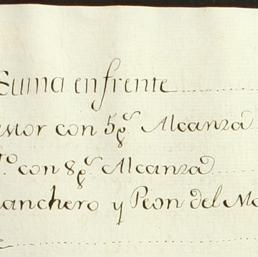 Suma enfrente
con 5 p.s Alcanza
con 8 p.s Alcanza
Ranchero y Peon del